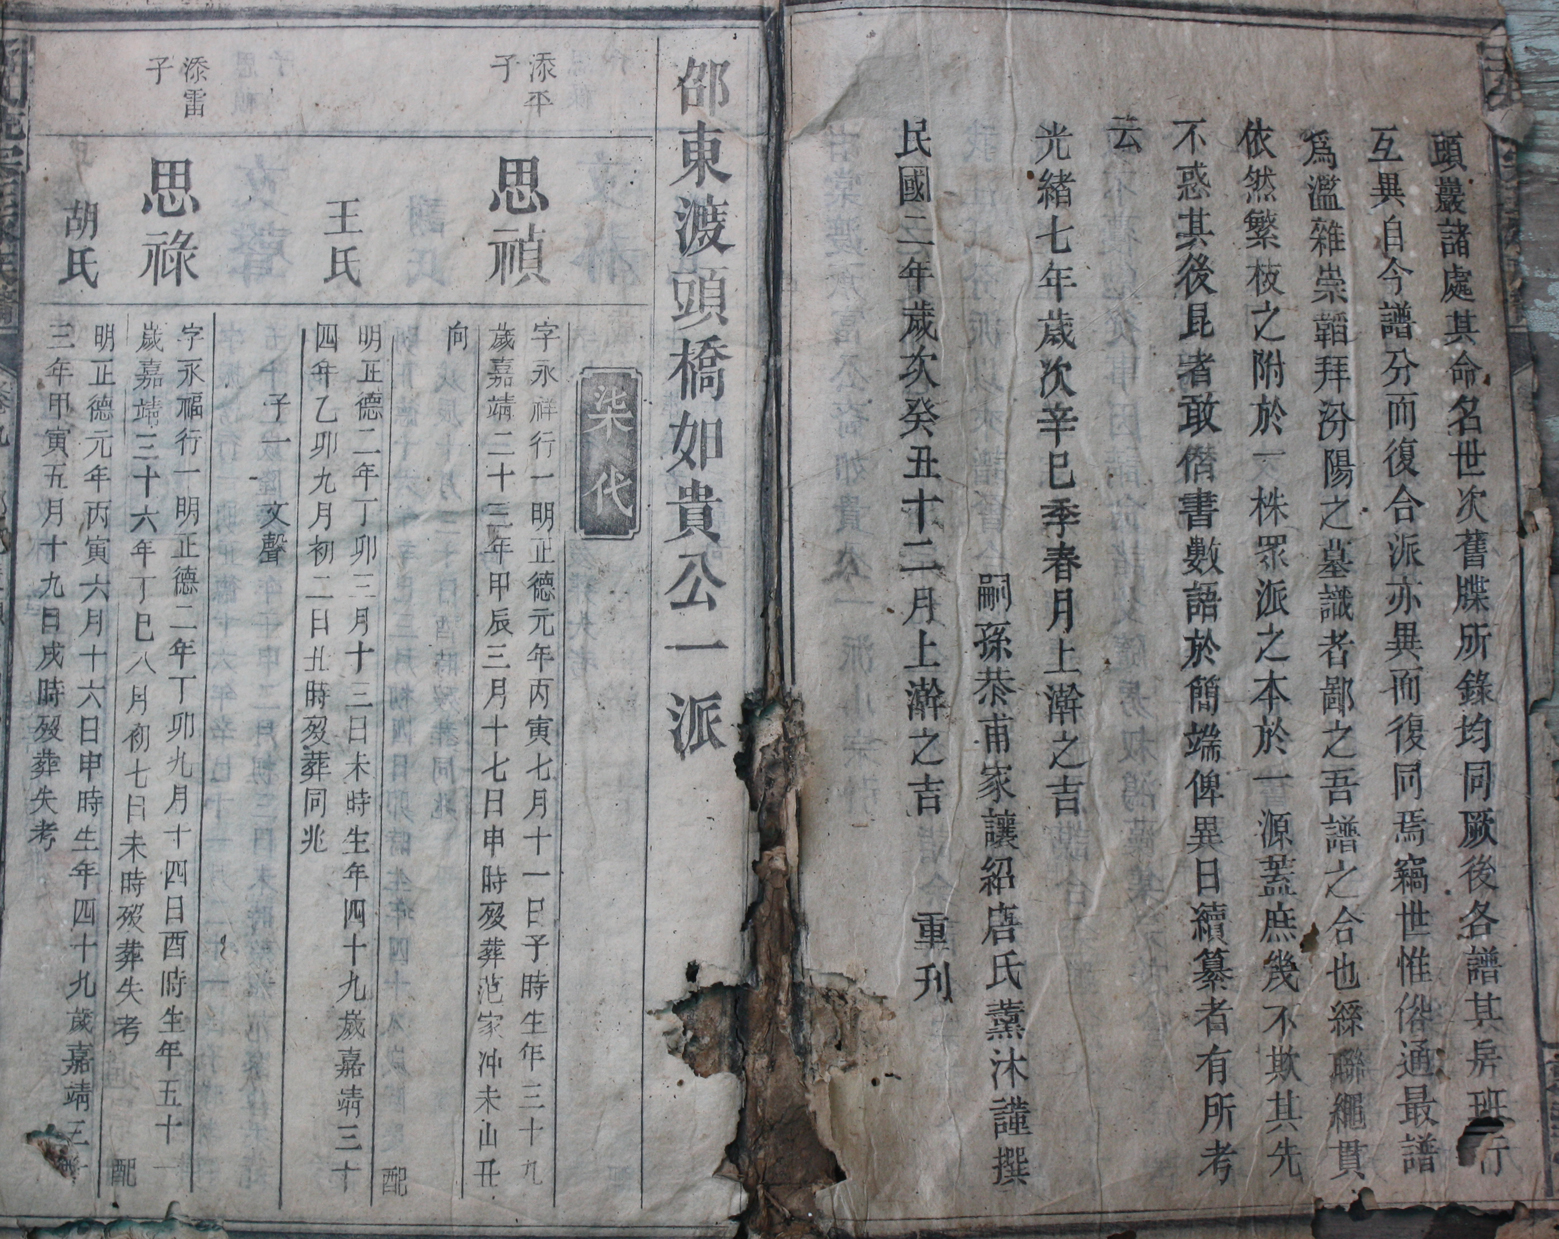 頭巖諸處其命名世次舊牒所錄均同厥後各譜其房班行
互異自今譜分而復合派亦異而復同焉竊世惟俗通最譜
爲濫雜崇韜拜汾陽之墓識者鄙之吾譜之合也繇聯繩貫
依然繁枝之附於一株眾派之本於一源蓋庶幾不欺其先
不惑其後昆者敢僭書數語於簡端俾異日續纂者有所考
云
光緒七年歲次辛巳季春月上澣之吉
嗣孫恭甫家讓紹唐氏薰沐謹撰
民國二年歲次癸丑十二月上澣之吉 重刊
邵東渡頭橋如貴公一派
柒代
添平子
思禎
字永祥行一明正德元年丙寅七月十一日子時生年三十九
歲嘉靖二十三年甲辰三月十七日申時歿葬范家冲未山丑
向
配
王氏
明正德二年丁卯三月十三日未時生年四十九歲嘉靖三十
四年乙卯九月初二日丑時歿葬同兆
子一 文聲
添雷子
思祿
字永福行一明正德二年丁卯九月十四日酉時生年五十一
歲嘉靖三十六年丁巳八月初七日未時歿葬失考
配
胡氏
明正德元年丙寅六月十六日申時生年四十九歲嘉靖三十
三年甲寅五月十九日戌時歿葬失考